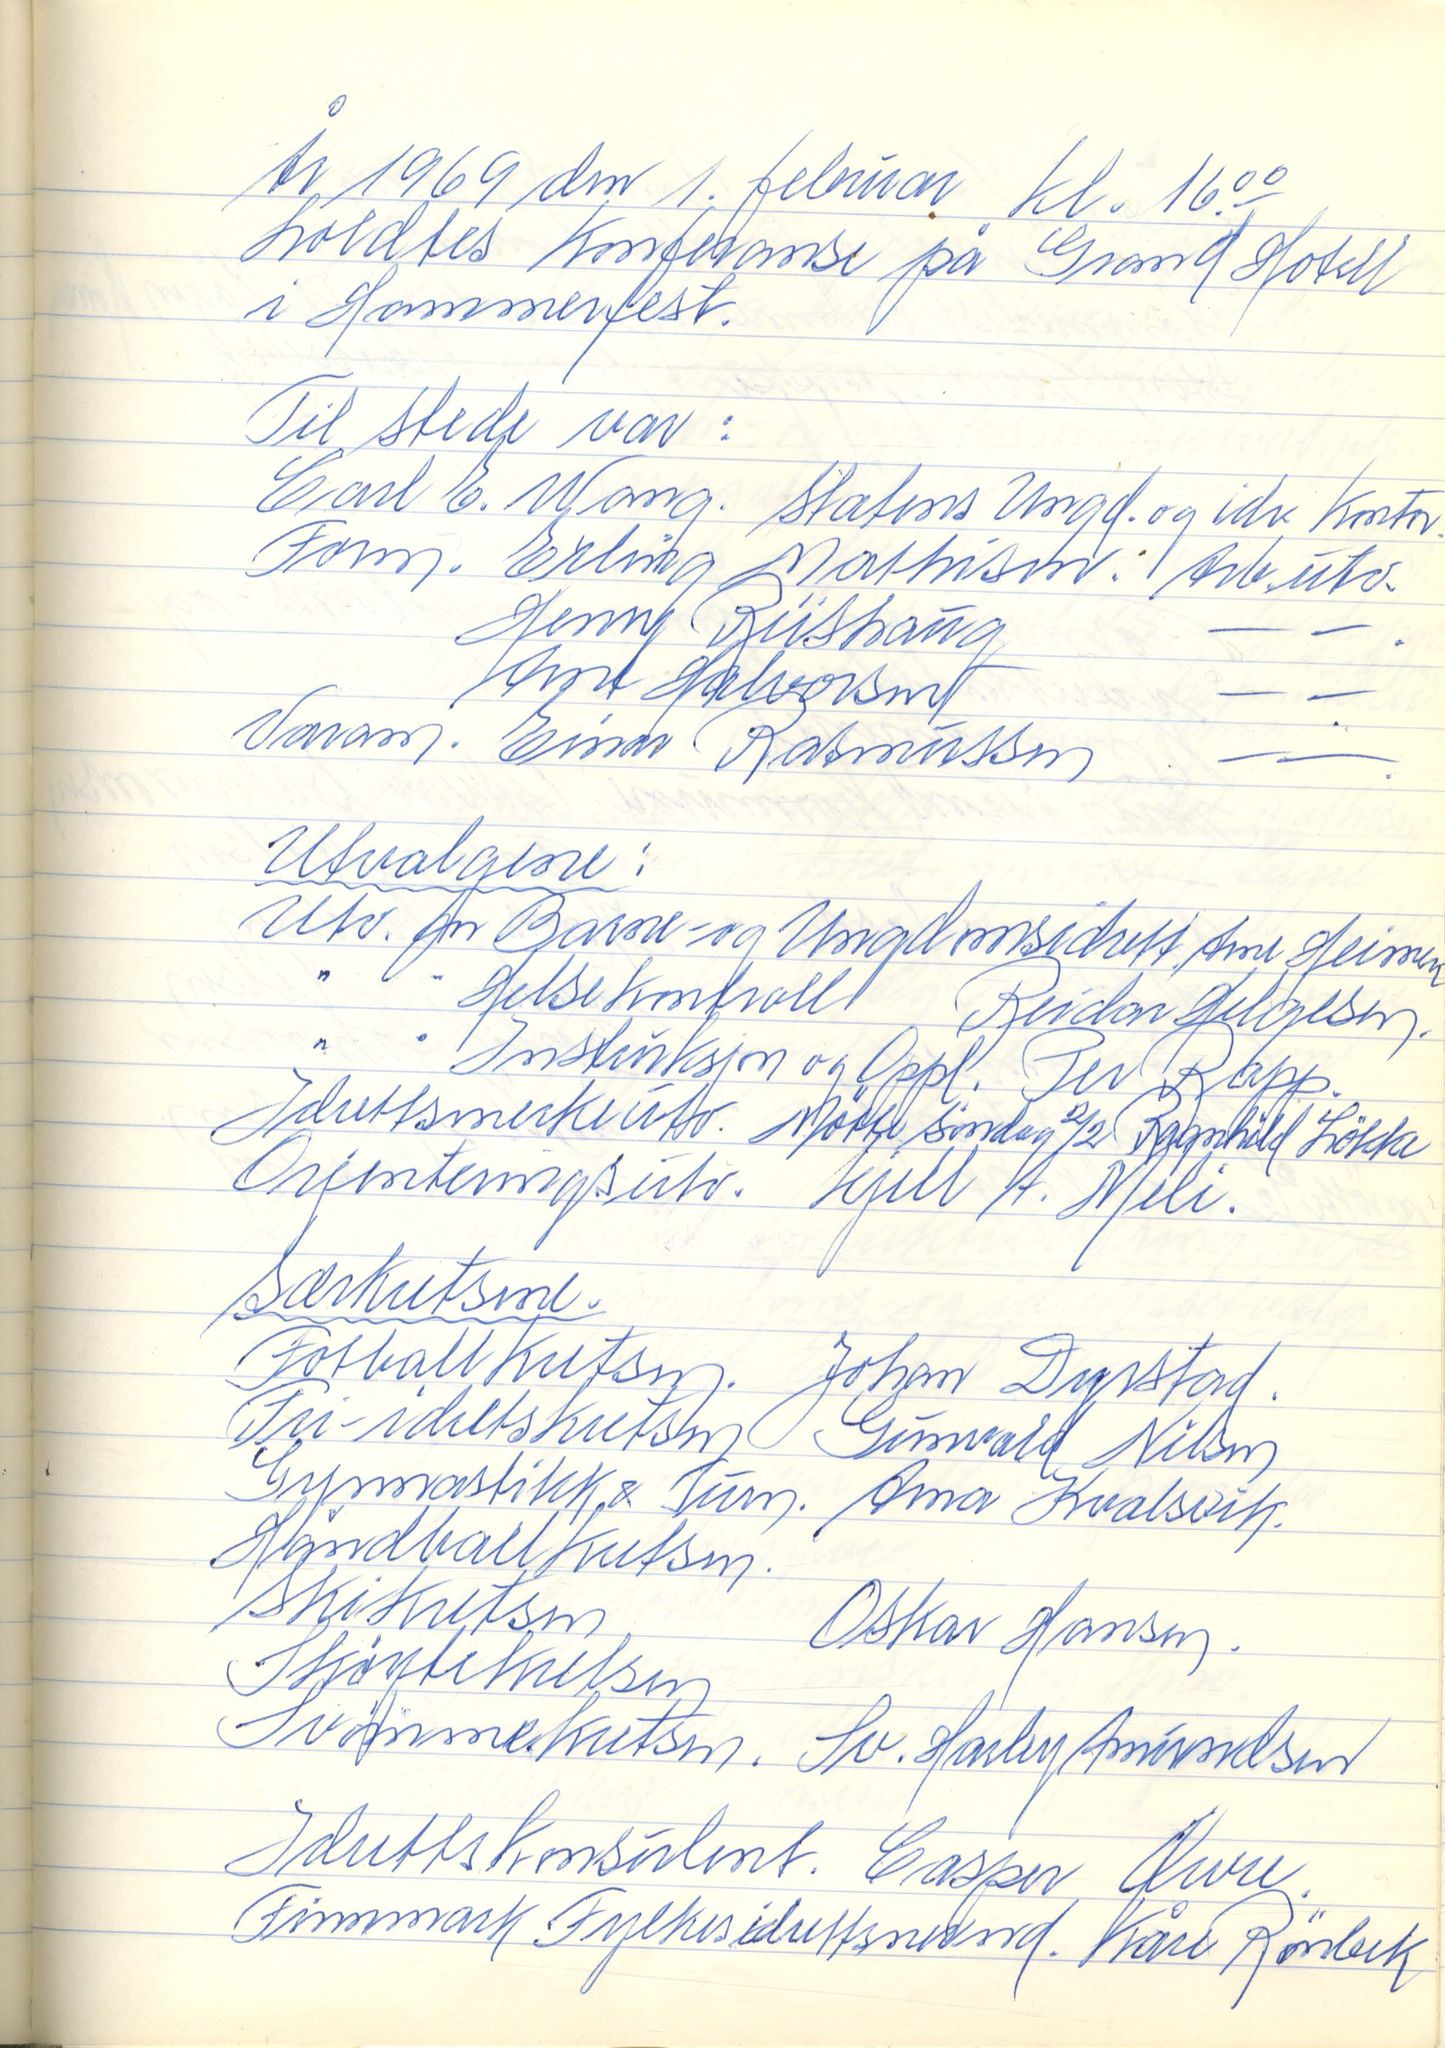 År 1969 den 1. februar kl. 16.00
holdtes Konferanse på Grand Hotell
i Hammerfest.
Til stede var:
Carl E. Wang. Statens Ungd. og idr. Kontor.
Form. Erling Mathisen. Arb.utv.
Henry Riishaug — — .
Arnt Halvorsen — —
Varam. Einar Rasmussen — —.
Utvalgene:
Utv. for Barne- og Ungdomsidrett, Arne Heimen
" " Helsekontroll Reidar Helgesen.
" " Instruksjon og Oppl. Per Rapp.
Idrettsmerkeutv. Møtte søndag 2/2 Ragnhild Løkke
Orienteringsutv. Kjell A. Meli.
Særkretsene.
Fotballkretsen. Johan Dyrstad.
Fri-idretskretsen Gunvald Nilsen
Gymnastikk & Turn. Anna Kvalsvik.
Håndballkretsen.
Skikretsen Oskar Hansen.
Skøytekretsen
Svømmekretsen. Sv. Harley Amundsen
Idrettskonsulent. Casper
Finnmark Fylkesidrettsnevnd. Kåre Rønbeck